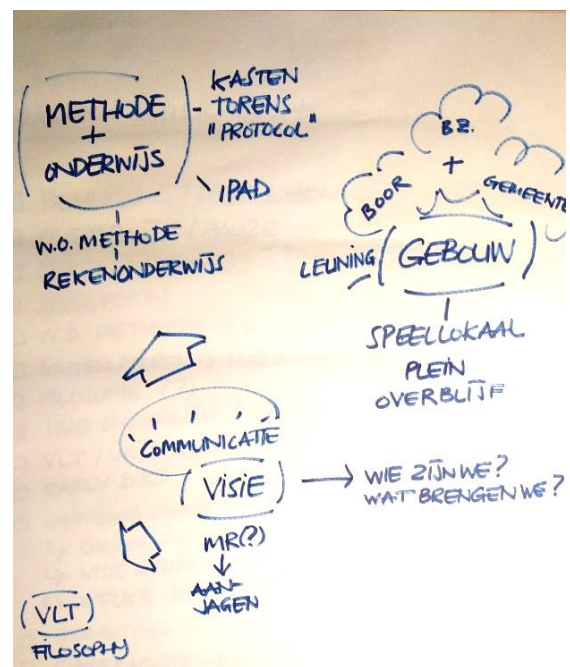 METHODE
+
ONDERWIJS
- KASTEN
TORENS
"PROTOCOL"
\ IPAD
W.O. METHODE
REKENONDERWIJS
B.Z.
+
BOOR
GEMEENTE
LEUNING
GEBOUW
SPEELLOKAAL
PLEIN
OVERBLIJF
COMMUNICATIE
(VISIE)
→ WIE ZIJN WE?
WAT BRENGEN WE?
MR(?)
↓
AAN-
JAGEN
(VLT)
FILOSOPHY